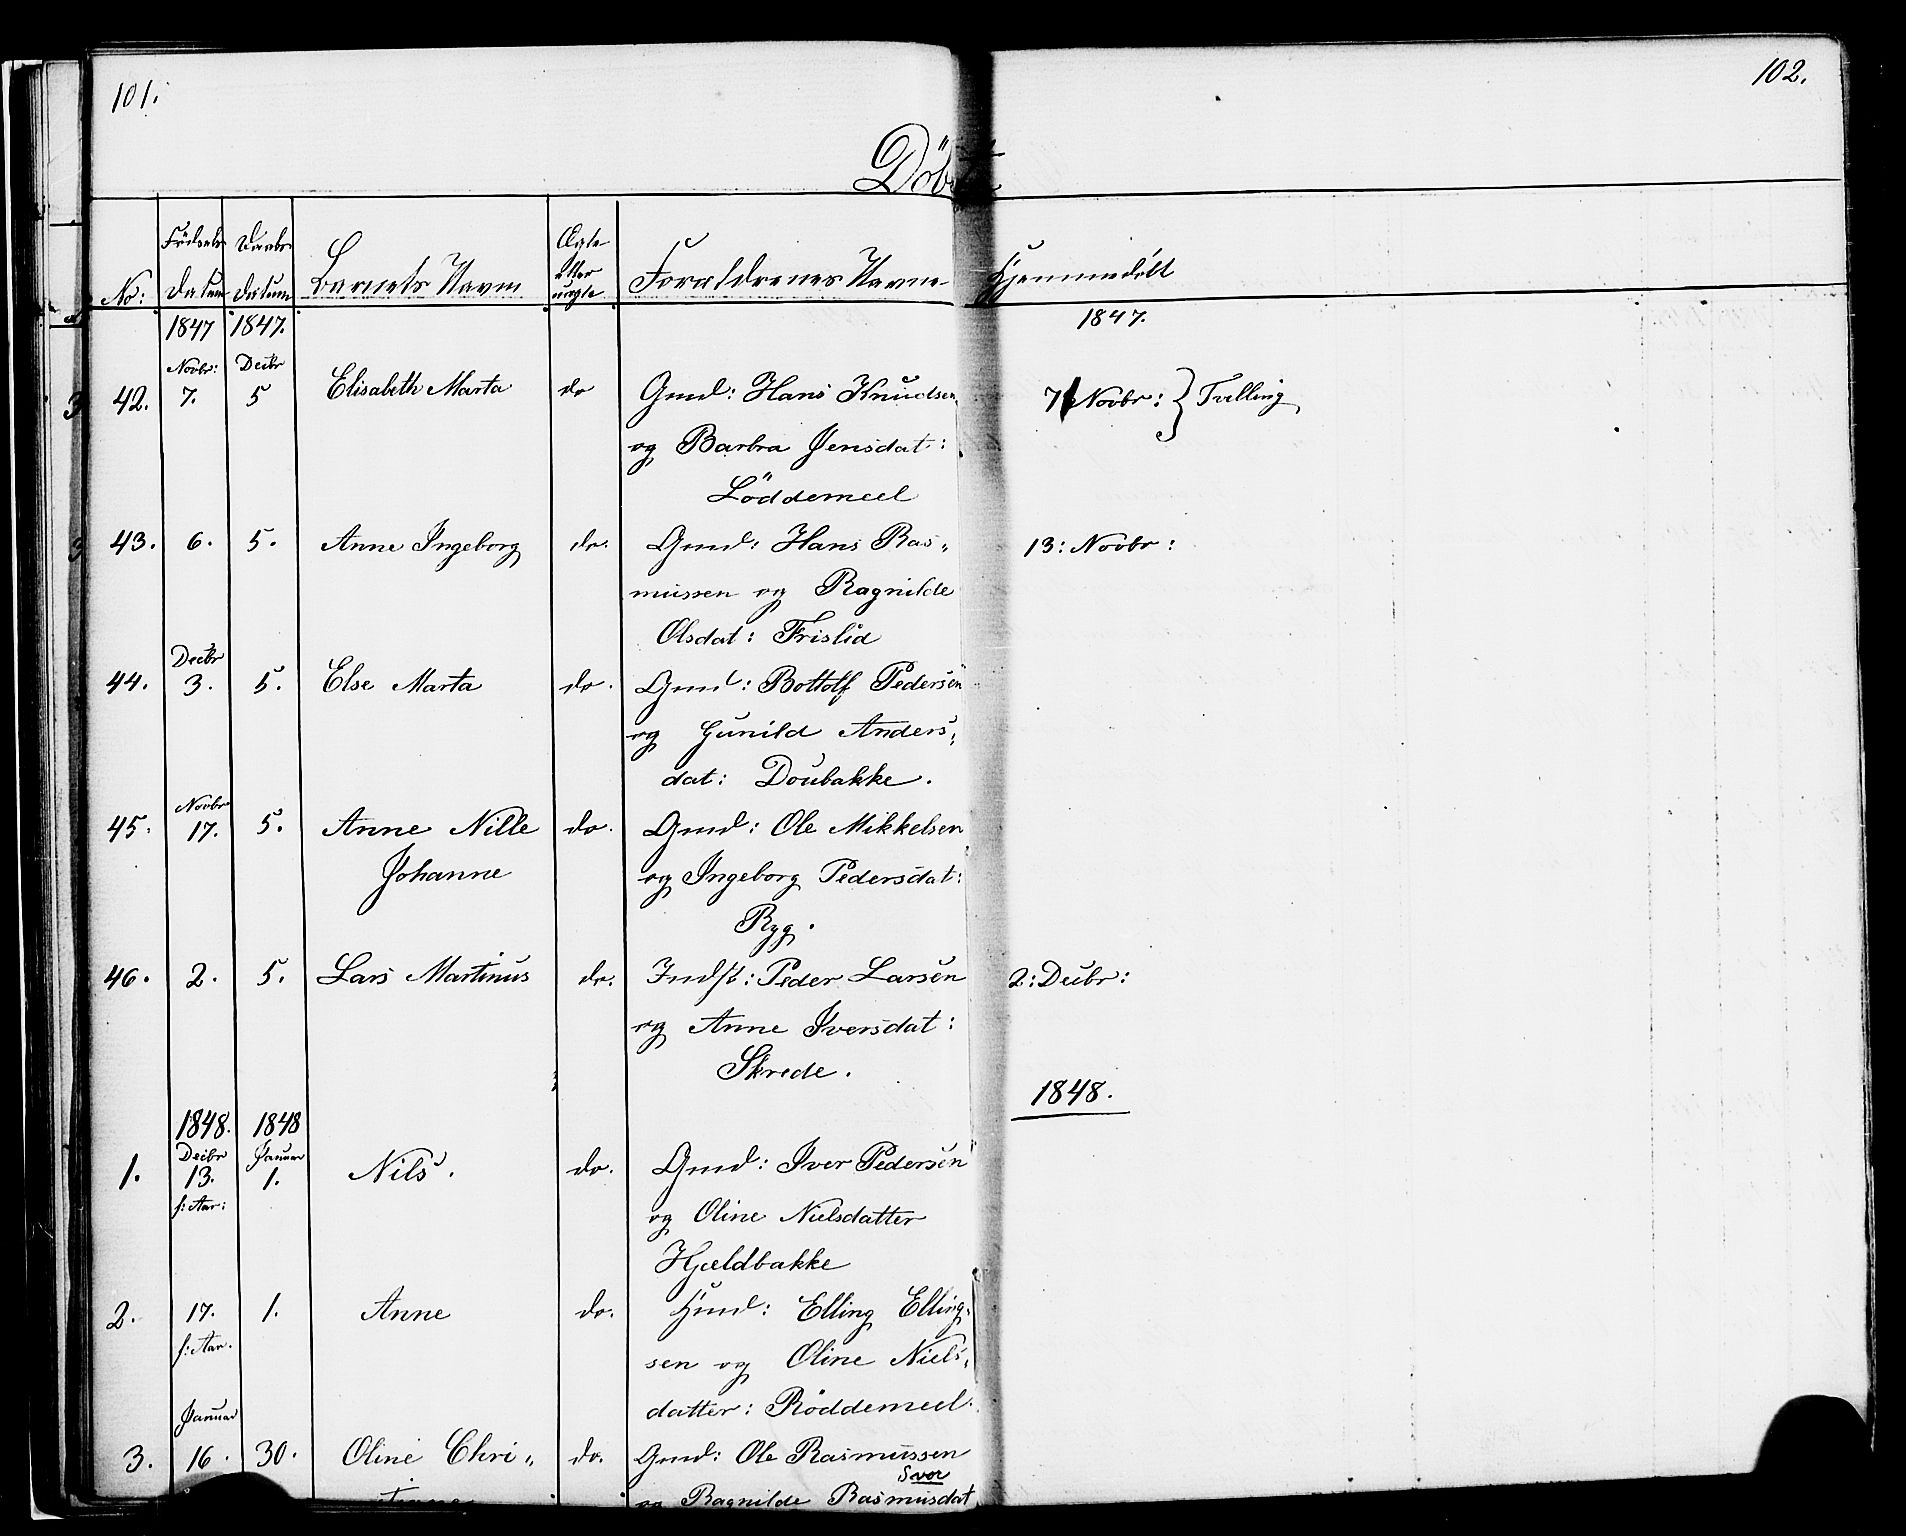 101.
102.
Döbte
No:
Födsels Datum
Daabs Datum
Barnets Navn
Ægte eller uægte
Forældrenes Navne
Hjemmedöbt
1847 1847. 1847.
Novbr: Decbr
42. 7. 5 Elisabeth Marta do Gmd: Hans Knudsen 7 Novbr: } Tvilling
og Barbra Jensdat:
Löddemeel
43. 6. 5. Anne Ingeborg do. Gmd: Hans Ras„ 13: Novbr:
mussen og Ragnilde
Olsdat: Frislid
Decbr
44. 3. 5. Else Marta do. Gmd: Bottolf Pedersen
og Gunild Anders„
dat: Doubakke.
Novbr
45. 17. 5. Anne Nille do. Gmd: Ole Mikkelsen
Johanne og Ingeborg Pedersdat:
Ryg.
46. 2. 5. Lars Martinus do. Indst: Peder Larsen 2: Decbr:
og Anne Iversdat:
Skrede.
1848.
1848. 1848
Decbr Januar
1. 13. 1. Nils. do. Gmd: Iver Pedersen
f: Aar: og Oline Nielsdatter
Hjældbakke
2. 17. 1. Anne do. Hmd: Elling Elling„
f: Aar. sen og Oline Niels„
datter: Röddemeel.
Januar
3. 16. 30. Oline Chri„ do. Gmd: Ole Rasmussen
Svor
og Ragnilde Rasmusdat